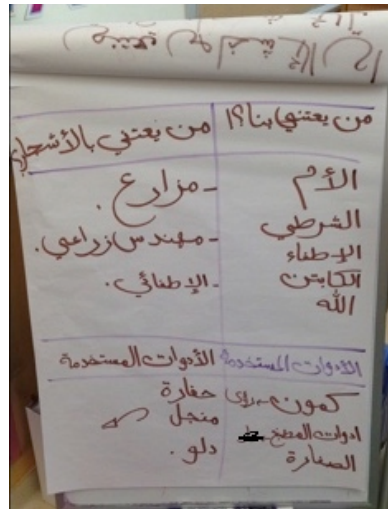 من يعتني بنا؟! من يعتني بالأشجار
الأم - مزارع.
الشرطي
الإطفاء - مهندس زراعي.
الكابتن - الإطفائي.
الله
الأدوات المستخدمة الأدوات المستخدمة
كمون حفارة
ادوات المطبخ منجل
الصنارة دلو.